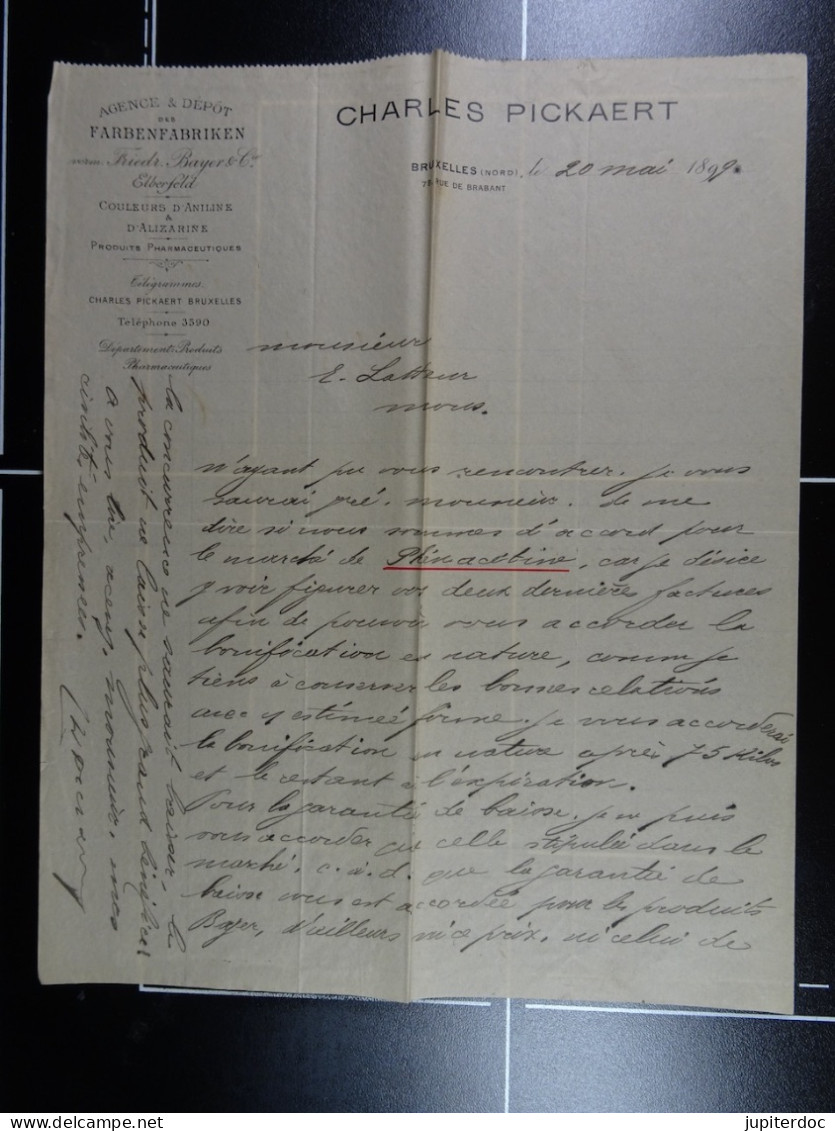 AGENCE & DÉPÔT
DES
FARBENFABRIKEN
vorm. Friedr. Bayer & Co
Elberfeld
COULEURS D'ANILINE
&
D'ALIZARINE
PRODUITS PHARMACEUTIQUES
Télégrammes
CHARLES PICKAERT BRUXELLES
Téléphone 3590
Département: Produits
Pharmaceutiques
CHARLES PICKAERT
BRUXELLES (NORD), le 20 mai 1899
RUE DE BRABANT
monsieur
E. Latteur
mons.
n'ayant pu vous rencontrer. je vous
saurai gré. monsieur. de me
dire si nous sommes d'accord pour
le marché de Phénacétine, car je désire
y voir figurer vos deux dernières factures
afin de pouvoir vous accorder la
bonification en nature, comme je
tiens à conserver les bonnes relations
avec votre estimée firme. je vous accorderai
la bonification en nature après 75 Kilos
et le restant à l'expiration.
Pour la garantie de baisse. je ne puis
vous accorder que celle stipulée dans le
marché. c. à. d. que la garantie de
baisse vous est accordée pour les produits
Bayer, d'ailleurs ni ce prix. ni celui de
la concurrence ne saurait baisser, le
produit ne laisse plus grand bénéfice!
A vous lire, agréez, monsieur, mes
civilités empressées.
jupiterdoc